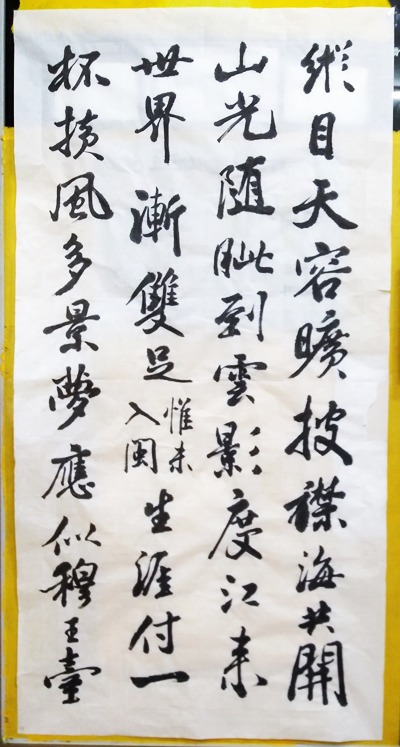 縱目天容曠披襟海共開
山光随眦到雲影度江来
世界漸雙足惟未入閩生涯付一
杯橫風多景夢應似穆王臺